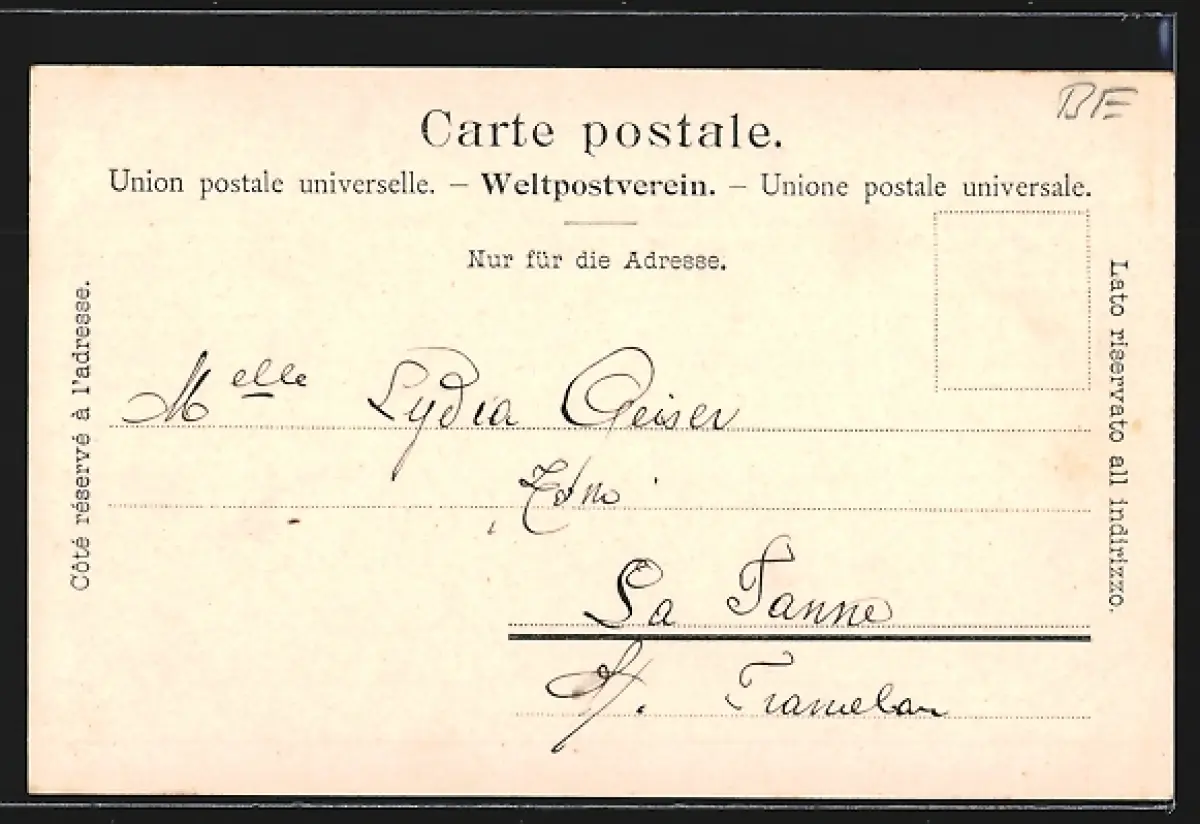 BE
Carte postale.
Union postale universelle. — Weltpostverein. — Unione postale universale.
Nur für die Adresse.
Côté réservé à l'adresse.
Lato riservato all indirizzo.
Melle Lydia Geiser
La Tanne
Tramelan